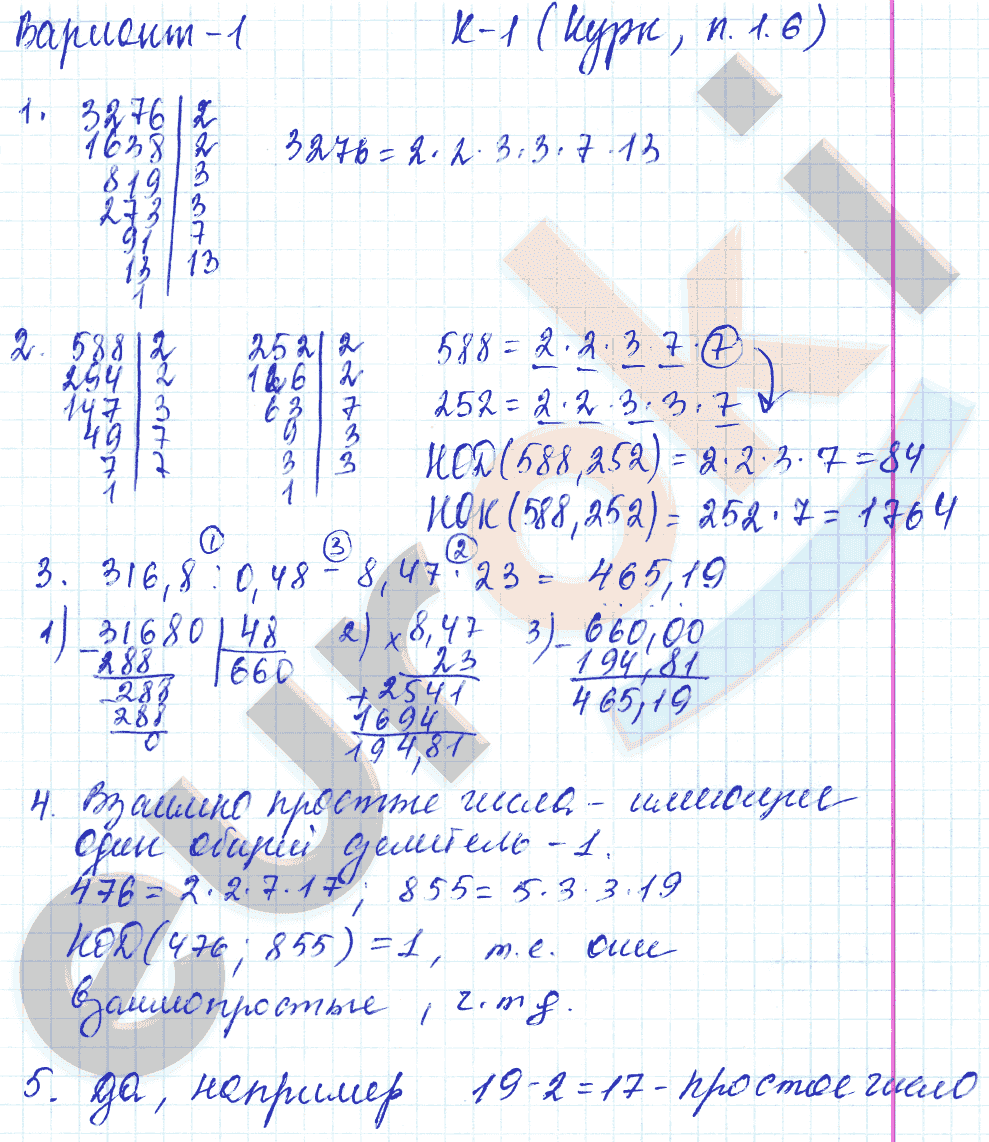 Вариант-1 К-1 (Курк, п. 1.6)
1. 3276 | 2
1638 | 2 3276 = 2·2·3·3·7·13
819 | 3
273 | 3
91 | 7
13 | 13
1
2. 588 | 2 252 | 2 588 = 2·2·3·7·7
294 | 2 126 | 2
147 | 3 63 | 7 252 = 2·2·3·3·7
49 | 7 9 | 3
7 | 7 3 | 3 НОД(588,252) = 2·2·3·7 = 84
1 1
НОК(588,252) = 252·7 = 1764
1 3 2
3. 316,8 : 0,48 - 8,47 · 23 = 465,19
1) 31680 | 48 2) × 8,47 3) - 660,00
- 288 | 660 23 194,81
- 288 + 2541 465,19
288 1694
0 194,81
4. Взаимно простые числа - имеющие
один общий делитель - 1.
476 = 2·2·7·17; 855 = 5·3·3·19
НОД(476; 855) = 1, т.е. они
взаимопростые, ч.т.д.
5. Да, например 19-2=17 - простое число
euroki